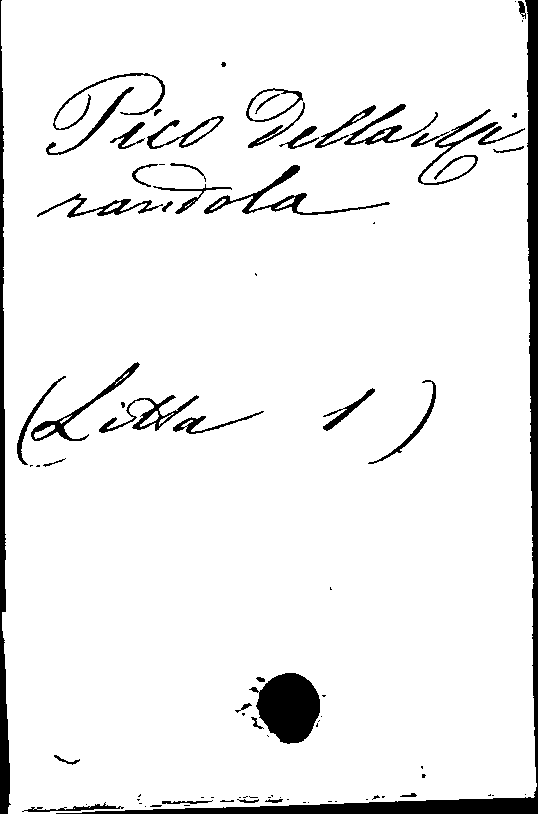 Pico Della Mi-
randola
(Litta 1)